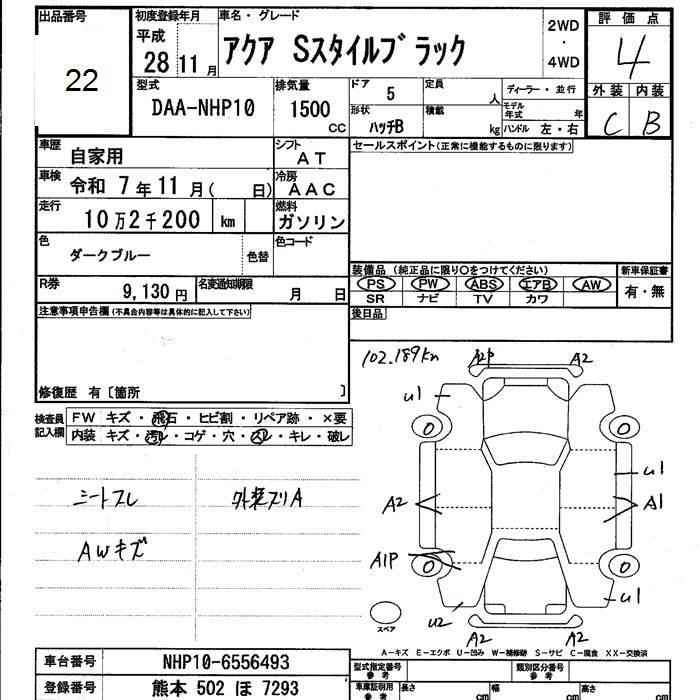 出品番号
22
初度登録年月
平成
28 11 月
車名・グレード
アクア Sスタイルブラック
2WD
・
4WD
評価点
4
外装 内装
C B
型式
DAA-NHP10
排気量
1500
CC
ドア
5
定員
人
ディーラー・並行
モデル年式 年
形状
ハッチB
積載
kg
ハンドル 左・右
車歴
自家用
シフト
AT
車検
令和 7年11月( 日)
冷房
AAC
走行
10万2千200 km
燃料
ガソリン
色
ダークブルー
色替
色コード
R券
9,130円
名変通知期限
月 日
セールスポイント(正常に機能するものに限ります)
装備品(純正品に限り○をつけてください)
新車保証書
PS PW ABS エアB AW
SR ナビ TV カワ
有・無
後日品
注意事項申告欄(不具合内容等は具体的に記入して下さい)
修復歴 有〔箇所 〕
検査員記入欄
FW キズ・飛石・ヒビ割・リペア跡・×要
内装 キズ・汚れ・コゲ・穴・スレ・キレ・破レ
シートスレ
AWキズ
外装スリA
102.189km
A2P A2
u1
0 0
u1
A2 A1
A1P
0 0
u2 u1
A2 A2
スペア
A−キズ E−エクボ U−凹み W−補修跡 S−サビ C−腐食 XX−交換済
車台番号
NHP10-6556493
登録番号
熊本 502 ほ 7293
型式指定番号
参考
類別区分番号
参考
車庫証明用
参考
長さ cm
幅 cm
高さ cm